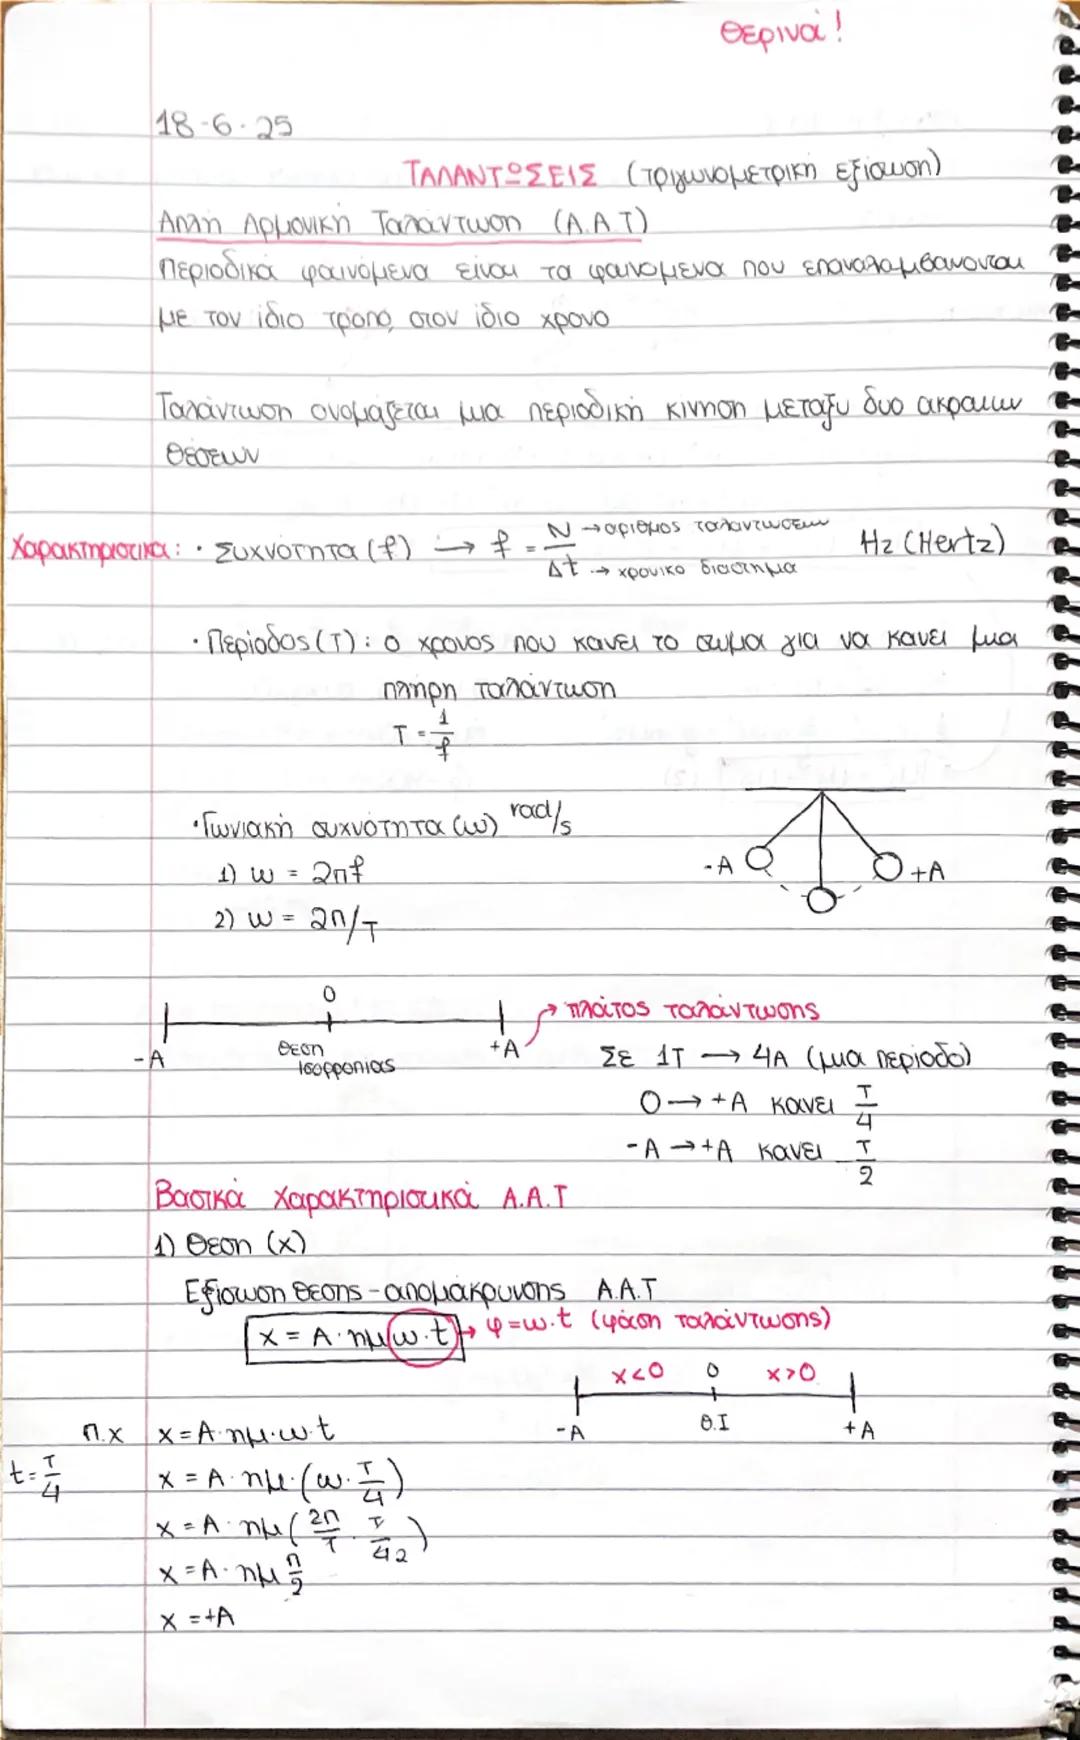 Θερινά!
18-6-25
ΤΑΛΑΝΤΩΣΕΙΣ (τριγωνομετρική εξίσωση)
Απλή Αρμονική Ταλάντωση (Α.Α.Τ)
Περιοδικά φαινόμενα είναι τα φαινομενα που επαναλαμβανονται
με τον ίδιο τροπο, στον ίδιο χρονο
Ταλάντωση ονομάζεται μια περιοδική κίνηση μεταξυ δυο ακραιων
θεσεων
Χαρακτηριστικα: · Συχνότητα (f) → f = N/Δt → αριθμος ταλαντωσεων Hz (Hertz)
→ χρονικο διαστημα
· Περίοδος (T): ο χρονος που κανει το σωμα για να κανει μια
πληρη ταλάντωση
T = 1/f
· Γωνιακή συχνότητα (ω) rad/s
1) ω = 2πf
2) ω = 2π/T
-A +A
0
-A θεση ισορροπιας +A → πλάτος ταλάντωσης
Σε 1T → 4A (μια περίοδο)
0 → +A κανει T/4
-A → +A κανει T/2
Βασικά Χαρακτηριστικά Α.Α.Τ
1) Θεση (x)
Εξίσωση θεσης - απομάκρυνσης Α.Α.Τ
x = A · ημ(ω·t) → φ = ω·t (φάση ταλάντωσης)
x<0 0 x>0
-A Θ.Ι +A
π.χ x = A · ημ · ω · t
t = T/4 x = A · ημ · (ω · T/4)
x = A · ημ (2π/T · T/4 2)
x = A · ημ π/2
x = +A